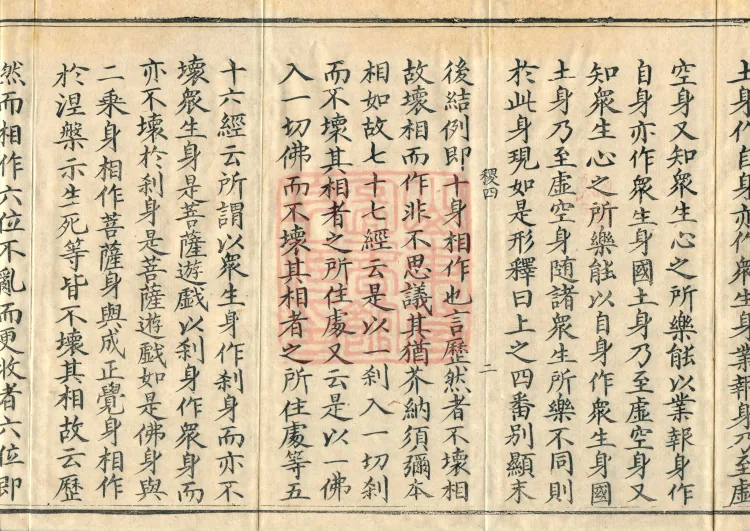 土身作自身亦作衆生身業報身乃至虛
空身又知衆生心之所樂能以業報身作
自身亦作衆生身國土身乃至虛空身又
知衆生心之所樂能以自身作衆生身國
土身乃至虛空身随諸衆生所樂不同則
於此身現如是形釋曰上之四番別顯末
稷四
二
後結例即十身相作也言歷然者不壞相
故壞相而作非不思議其猶芥納須彌本
相如故七十七經云是以一刹入一切刹
而不壞其相者之所住處又云是以一佛
入一切佛而不壞其相者之所住處等五
十六經云所謂以衆生身作刹身而亦不
壞衆生身是菩薩遊戲以刹身作衆生身而
亦不壞於刹身是菩薩遊戲如是佛身與
二乗身相作菩薩身與成正覺身相作
於涅槃示生死等皆不壞其相故云歷
然而相作六位不亂而更收者六位即